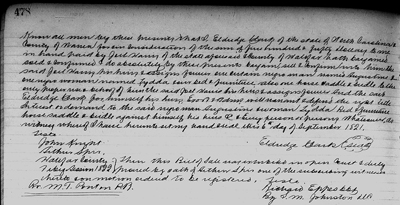 478
Know all men by these presents that I, Eldridge Clark of the State of North Carolina &
County of for & in consideration of the sum of five hundred & fifty dollars to me
in hand paid by Joel of the State aforesaid County of Halifax hath bargained
sold & confirmed & do absolutely by these presents bargain sell & confirm unto him the
said Joel his heirs & assigns forever one certain negro man named Augustine &
one negro woman named Lydda, one bed & furniture, also one horse saddle & bridle to the
only proper use & behoof of him the said Joel his heirs & assigns forever And the said
Eldridge Clark for himself his heirs Exors & Admrs will warrant & defend the right title
interest & demand to the said negro man Augustine & woman Lydda bed & furniture
horse saddle & bridle against himself his heirs & every person & persons whatsoever In
witness whereof I have hereunto set my hand & seal this 6 day of September 1821.
Teste
John Knight
Eldridge Clark (Seal)
Halifax County
Then this Bill of Sale was exhibited in open Court & duly
proved by oath of one of the subscribing witnesses
thereto & on motion ordered to be registered. Teste.
Richard Eppes Clk
By M. T. Ponton P.R.
By T. M. Johnston D.C.